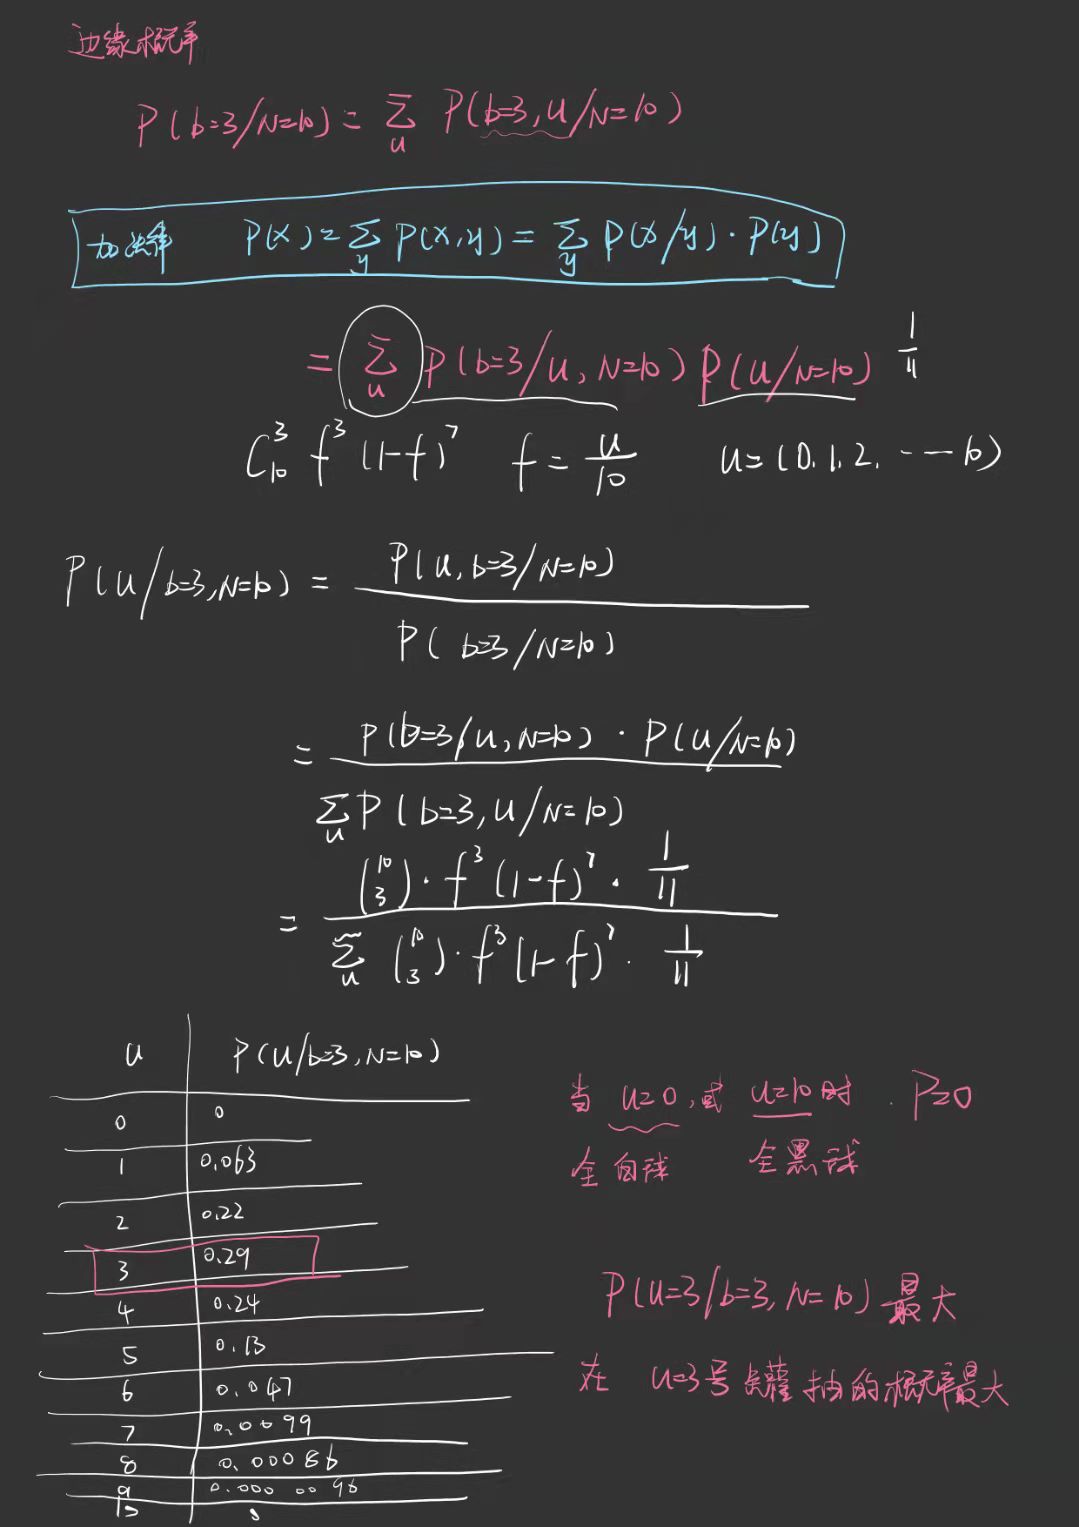 边缘概率
P(b=3/N=10) = Σ_u P(b=3,u/N=10)
加法律 P(x) = Σ_y P(x,y) = Σ_y P(x/y)·P(y)
= Σ_u P(b=3/u, N=10) P(u/N=10) 1/11
C_10^3 f^3 (1-f)^7 f = u/10 u=(0.1.2. ---- 10)
P(u/b=3,N=10) = P(u,b=3/N=10) / P(b=3/N=10)
= P(b=3/u,N=10)·P(u/N=10) / Σ_u P(b=3,u/N=10)
= (10 3)·f^3(1-f)^7·1/11 / Σ_u (10 3)·f^3(1-f)^7·1/11
u P(u/b=3,N=10)
0 0
1 0.063
2 0.22
3 0.29
4 0.24
5 0.13
6 0.047
7 0.0099
8 0.00086
9 0.0000096
10 0
当 u=0,或 u=10时. P=0
全白球 全黑球
P(u=3/b=3,N=10) 最大
在 u=3号罐抽的概率最大